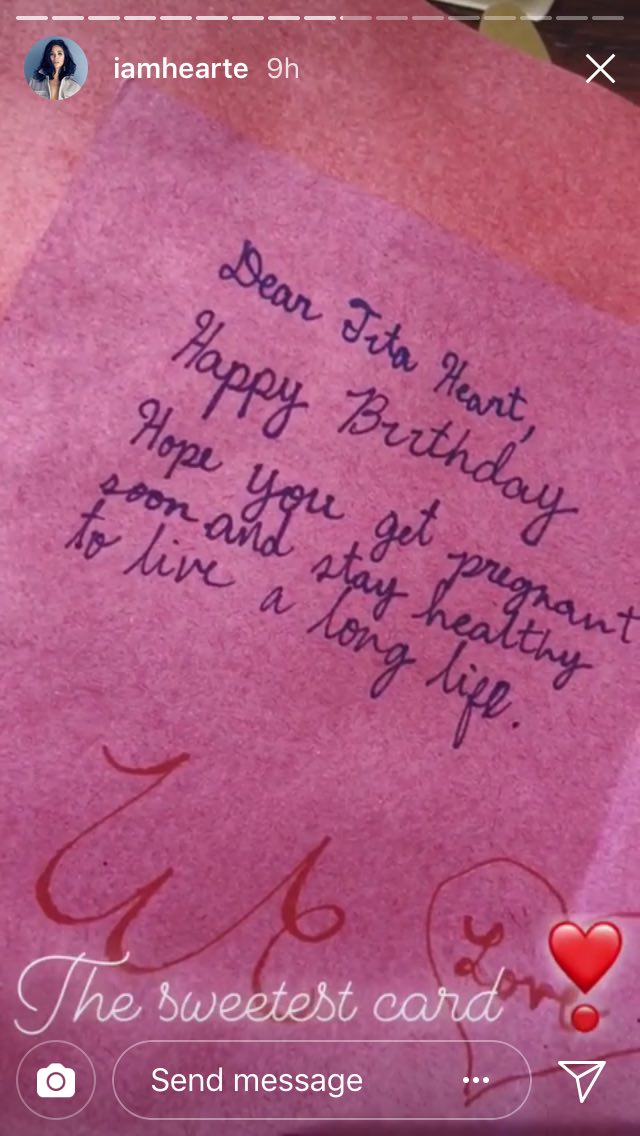 iamhearte 9h
Dear Tita Heart,
Happy Birthday
Hope you get pregnant
soon and stay healthy
to live a long life.
Love
The sweetest card
Send message